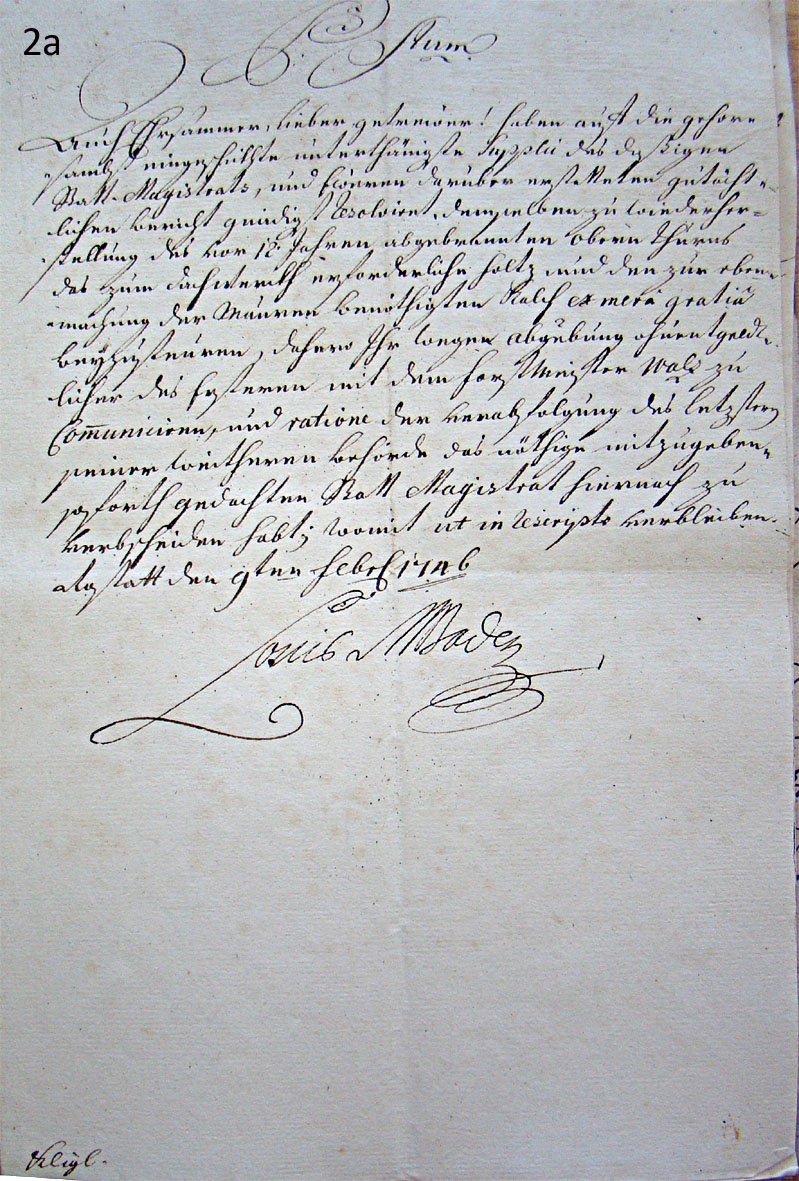 2a
P. Stum
Auch Ehrsammer, lieber getreüer! haben auf die gehor-
sambst eingeschickte unterthänigste Supplic des dasigen
Statt-Magistrats, und Eweren darüber erstatteten gutächt-
lichen bericht gnädigst Resolviret, demselben zu wiederher-
stellung des vor Jahren abgebranten obern thurns
das zum dachwerckh erforderliche holtz und den zur eben-
machung der Mauren benöthigten Kalch ex mera gratia
beyzusteüren, dahero Ihr wegen abgebung ohnentgeldt-
licher des Ersteren mit dem forstMeister zu
Communiciren, und ratione der verabfolgung des letzstern
seiner weitheren behörde das nöthige mitzugeben,
soforth gedachten Statt Magistrat hiernach zu
verbscheiden habt; womit ut in Rescripto verbleiben.
Rastatt den 9ten Febr 1746
Louis MBaden